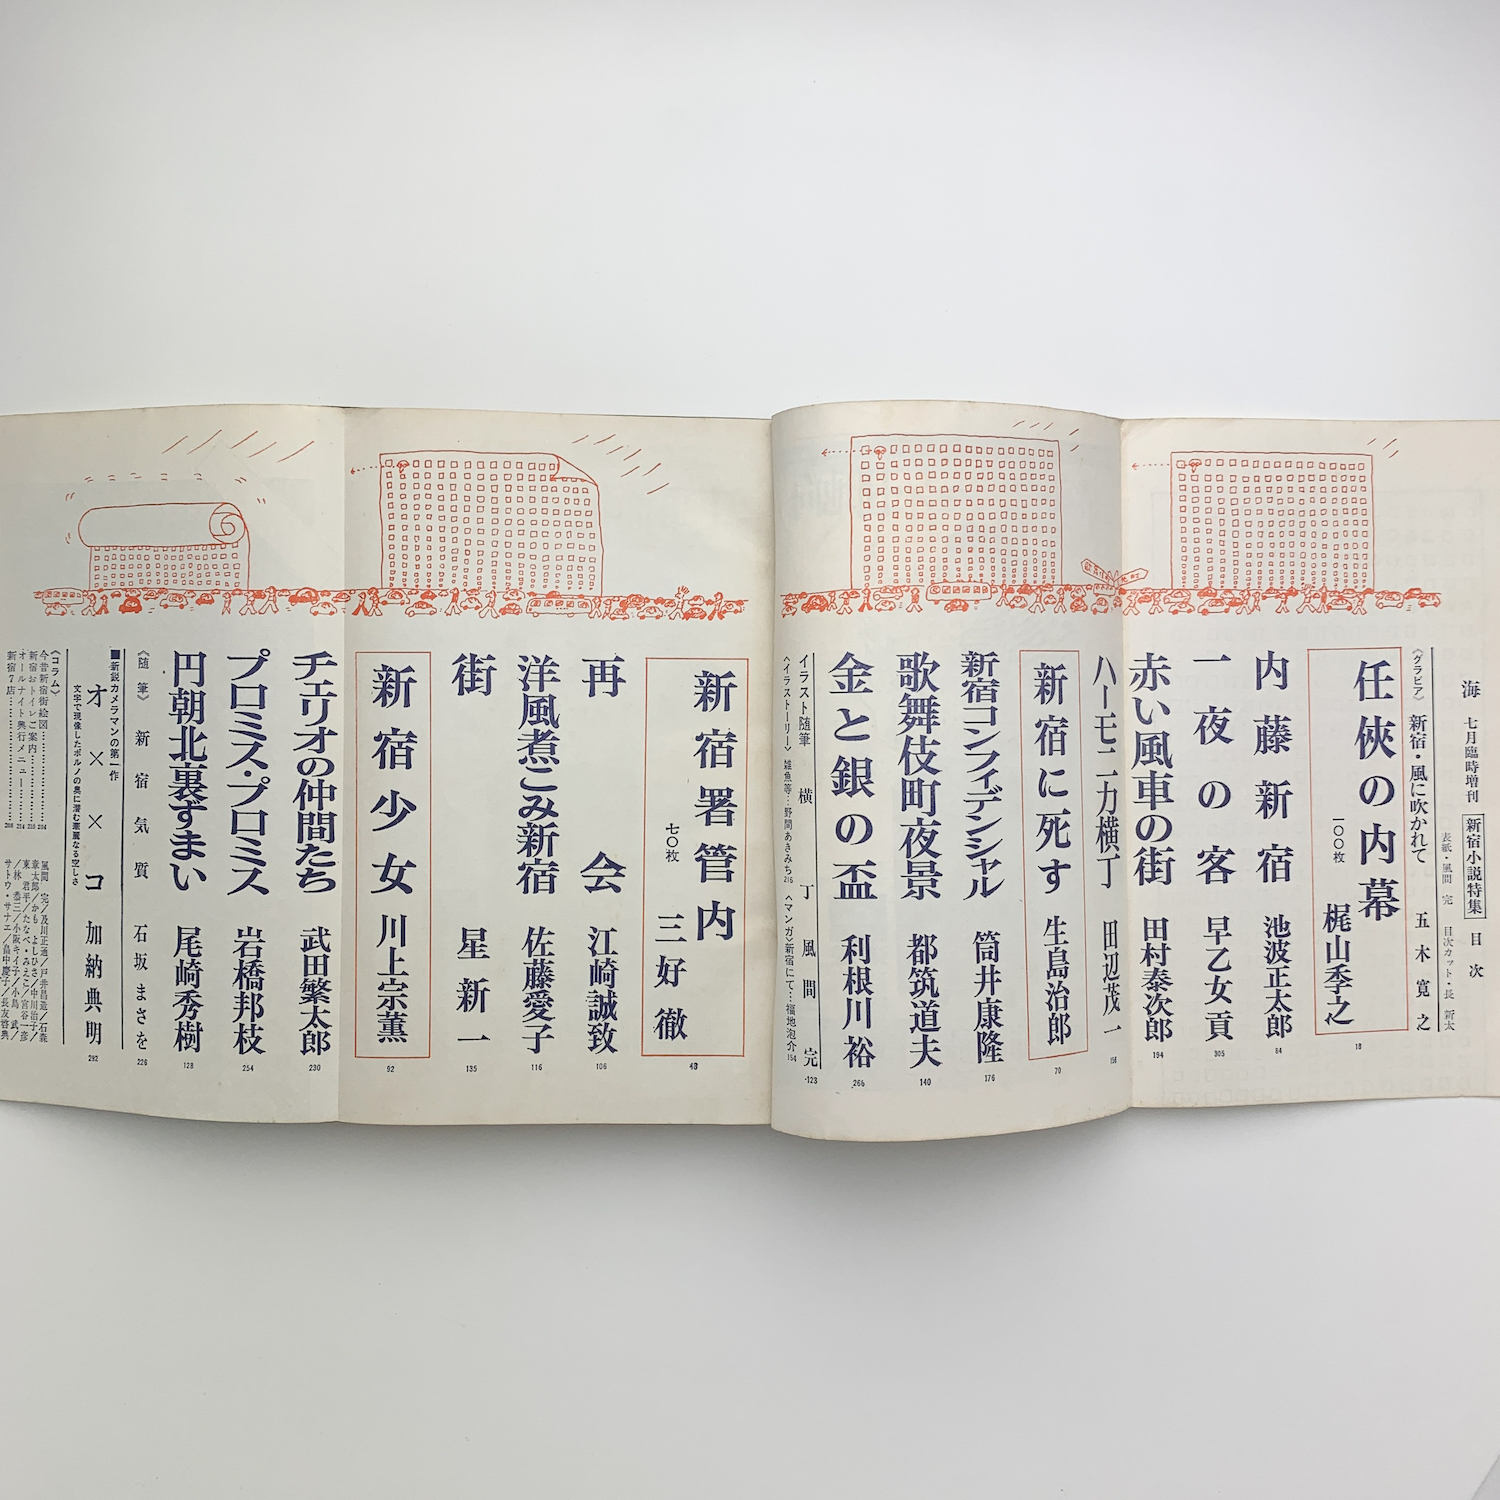 海 七月臨時増刊 新宿小説特集 目次
表紙・風間 完 目次カット・長 新太
《グラビア》 新宿・風に吹かれて 五木寛之
任俠の内幕
一〇〇枚
梶山季之
18
内藤新宿 池波正太郎 84
一夜の客 早乙女貢 305
赤い風車の街 田村泰次郎 194
ハーモニカ横丁 田辺茂一 156
新宿に死す 生島治郎 70
新宿コンフィデンシャル 筒井康隆 176
歌舞伎町夜景 都筑道夫 140
金と銀の盃 利根川裕 266
イラスト随筆 横丁 風間完 123
〈イラストーリー〉 雑魚等…野間あきみち 216 〈マンガ〉新宿にて…福地泡介 154
新宿署管内
七〇枚
三好徹
48
再会 江崎誠致 106
洋風煮こみ新宿 佐藤愛子 116
街 星新一 135
新宿少女 川上宗薫 92
チェリオの仲間たち 武田繁太郎 230
プロミス・プロミス 岩橋邦枝 254
円朝北裏ずまい 尾崎秀樹 128
《随筆》 新宿気質 石坂まさを 226
■新鋭カメラマンの第一作
オ××コ 加納典明 292
文字で現像したポルノの奥に潜む華麗なる空しさ
《コラム》
今昔新宿街絵図
新宿おトイレご案内
オールナイト興行メニュー
新宿7店
風間 完/及川正通/戸井昌造/石森
章太郎/かも よしひさ/中川治子/
東 君平/たなべ・みえこ/宮谷一彦
/林 恭三/小阪キイ子/小島 武/
サトウ・サナエ/畠中慶子/長友啓典